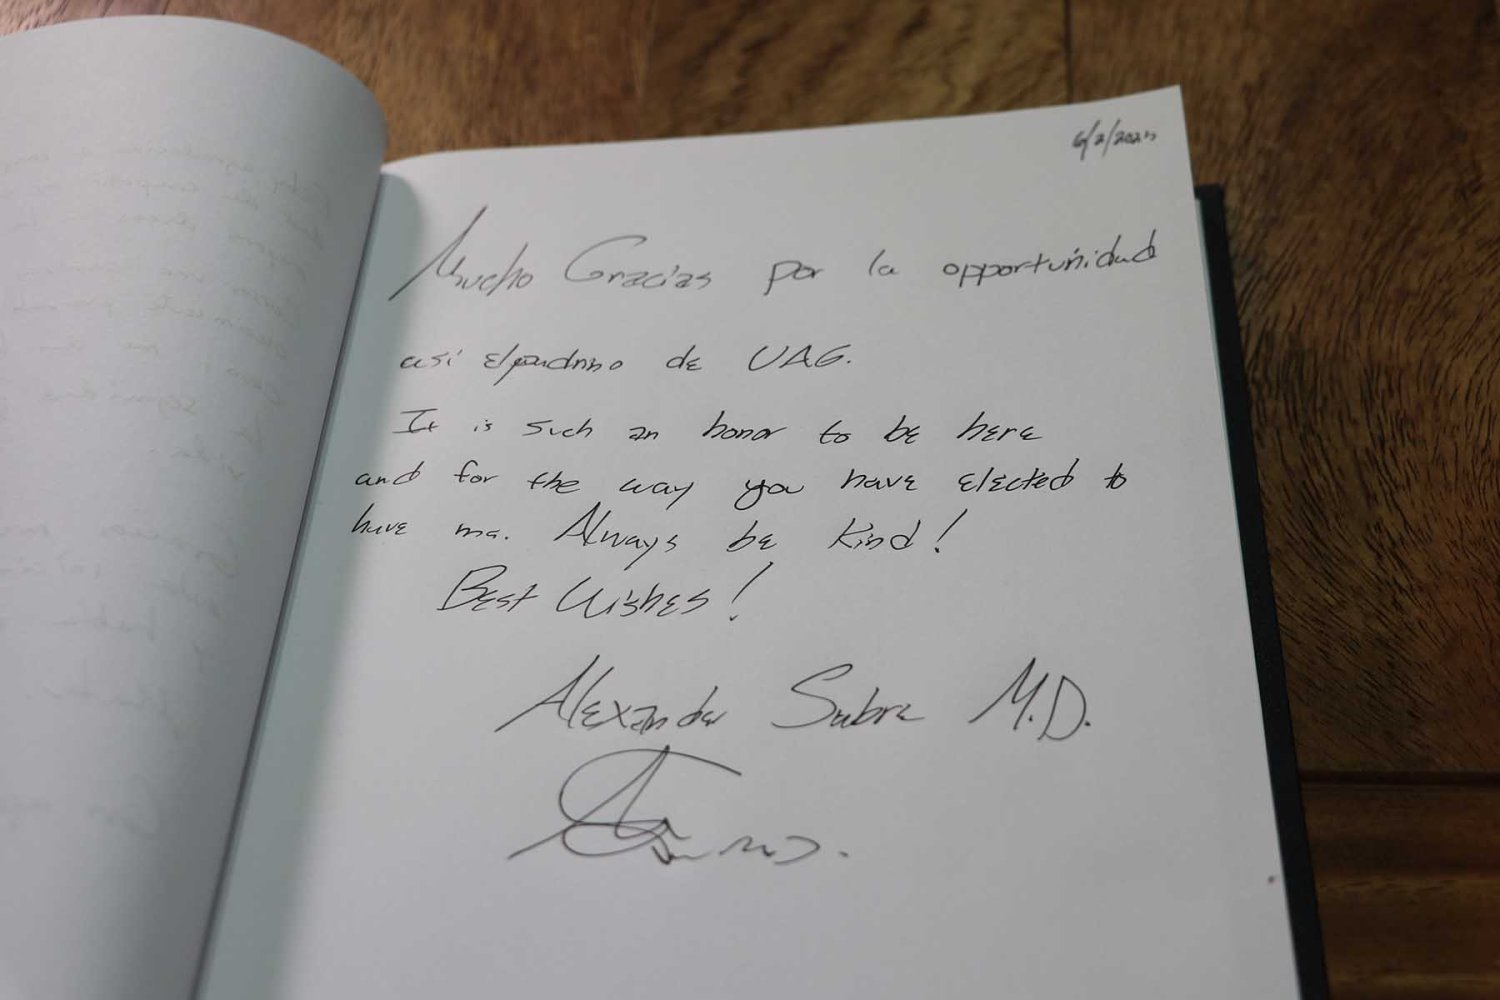 6/2/2025
Mucho Gracias por la opportuñidad
así el padrino de UAG.
It is such an honor to be here
and for the way you have elected to
have me. Always be kind!
Best Wishes!
Alexander Sabra M.D.